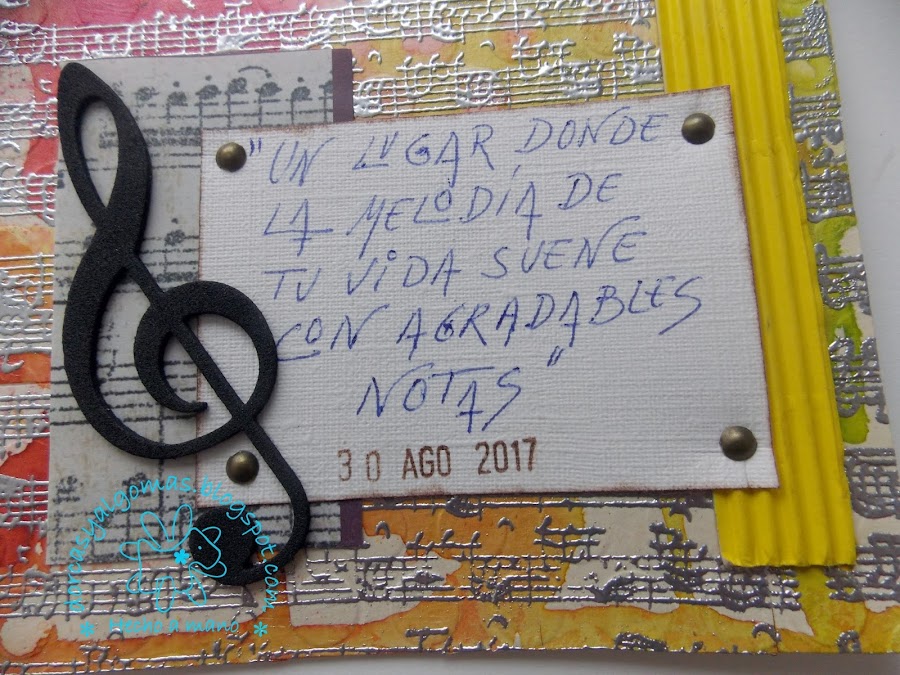 "UN LUGAR DONDE
LA MELODÍA DE
TU VIDA SUENE
CON AGRADABLES
NOTAS"
30 AGO 2017
porrasyalgomas.blogspot.com
* Hecho a mano *